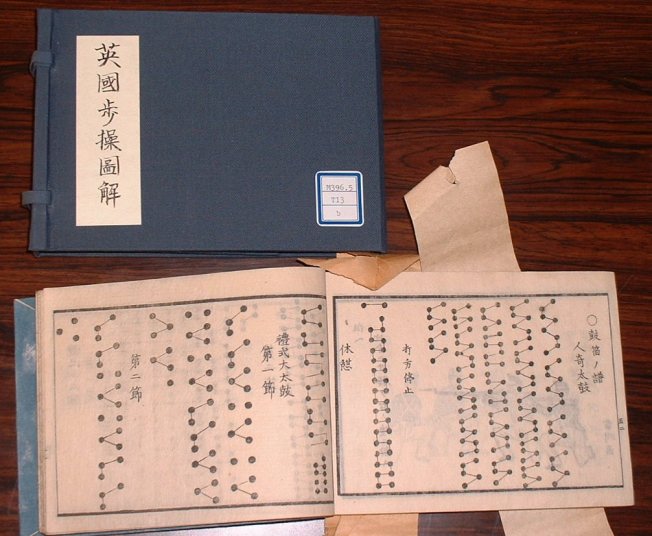 英國歩操圖解
M396.5
T13
b
〇鼓笛ノ譜
人寄太鼓
打方停止
休憩
禮式大太鼓
第一節
第二節